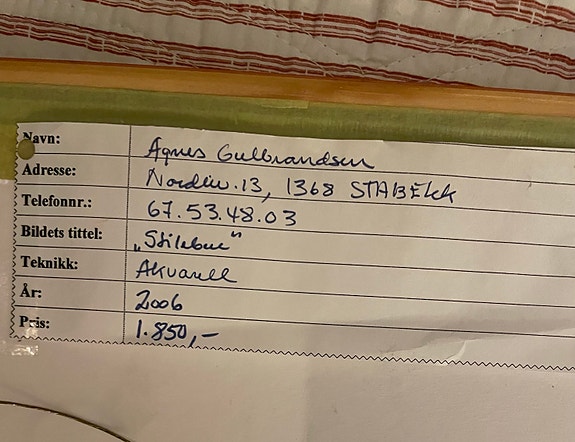 Navn: Agnes Gulbrandsen
Adresse: 13, 1368 STABEKK
Telefonnr.: 67.53.48.03
Bildets tittel:
Teknikk: Akvarell
År: 2006
Pris: 1.850,-